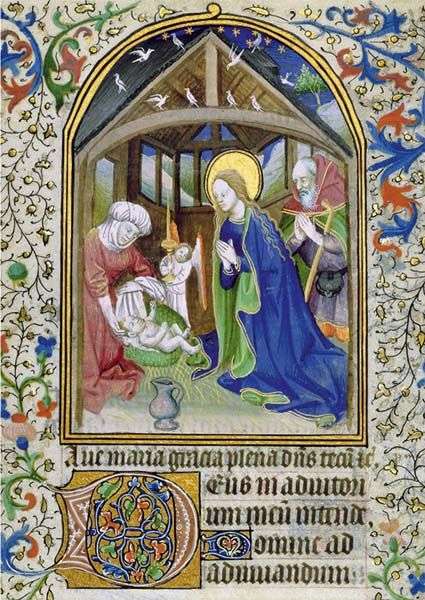 Aue maria gracia plena dn̄s tecū
Deus in adiutori
um meū intende
Domine ad
adiuuandum